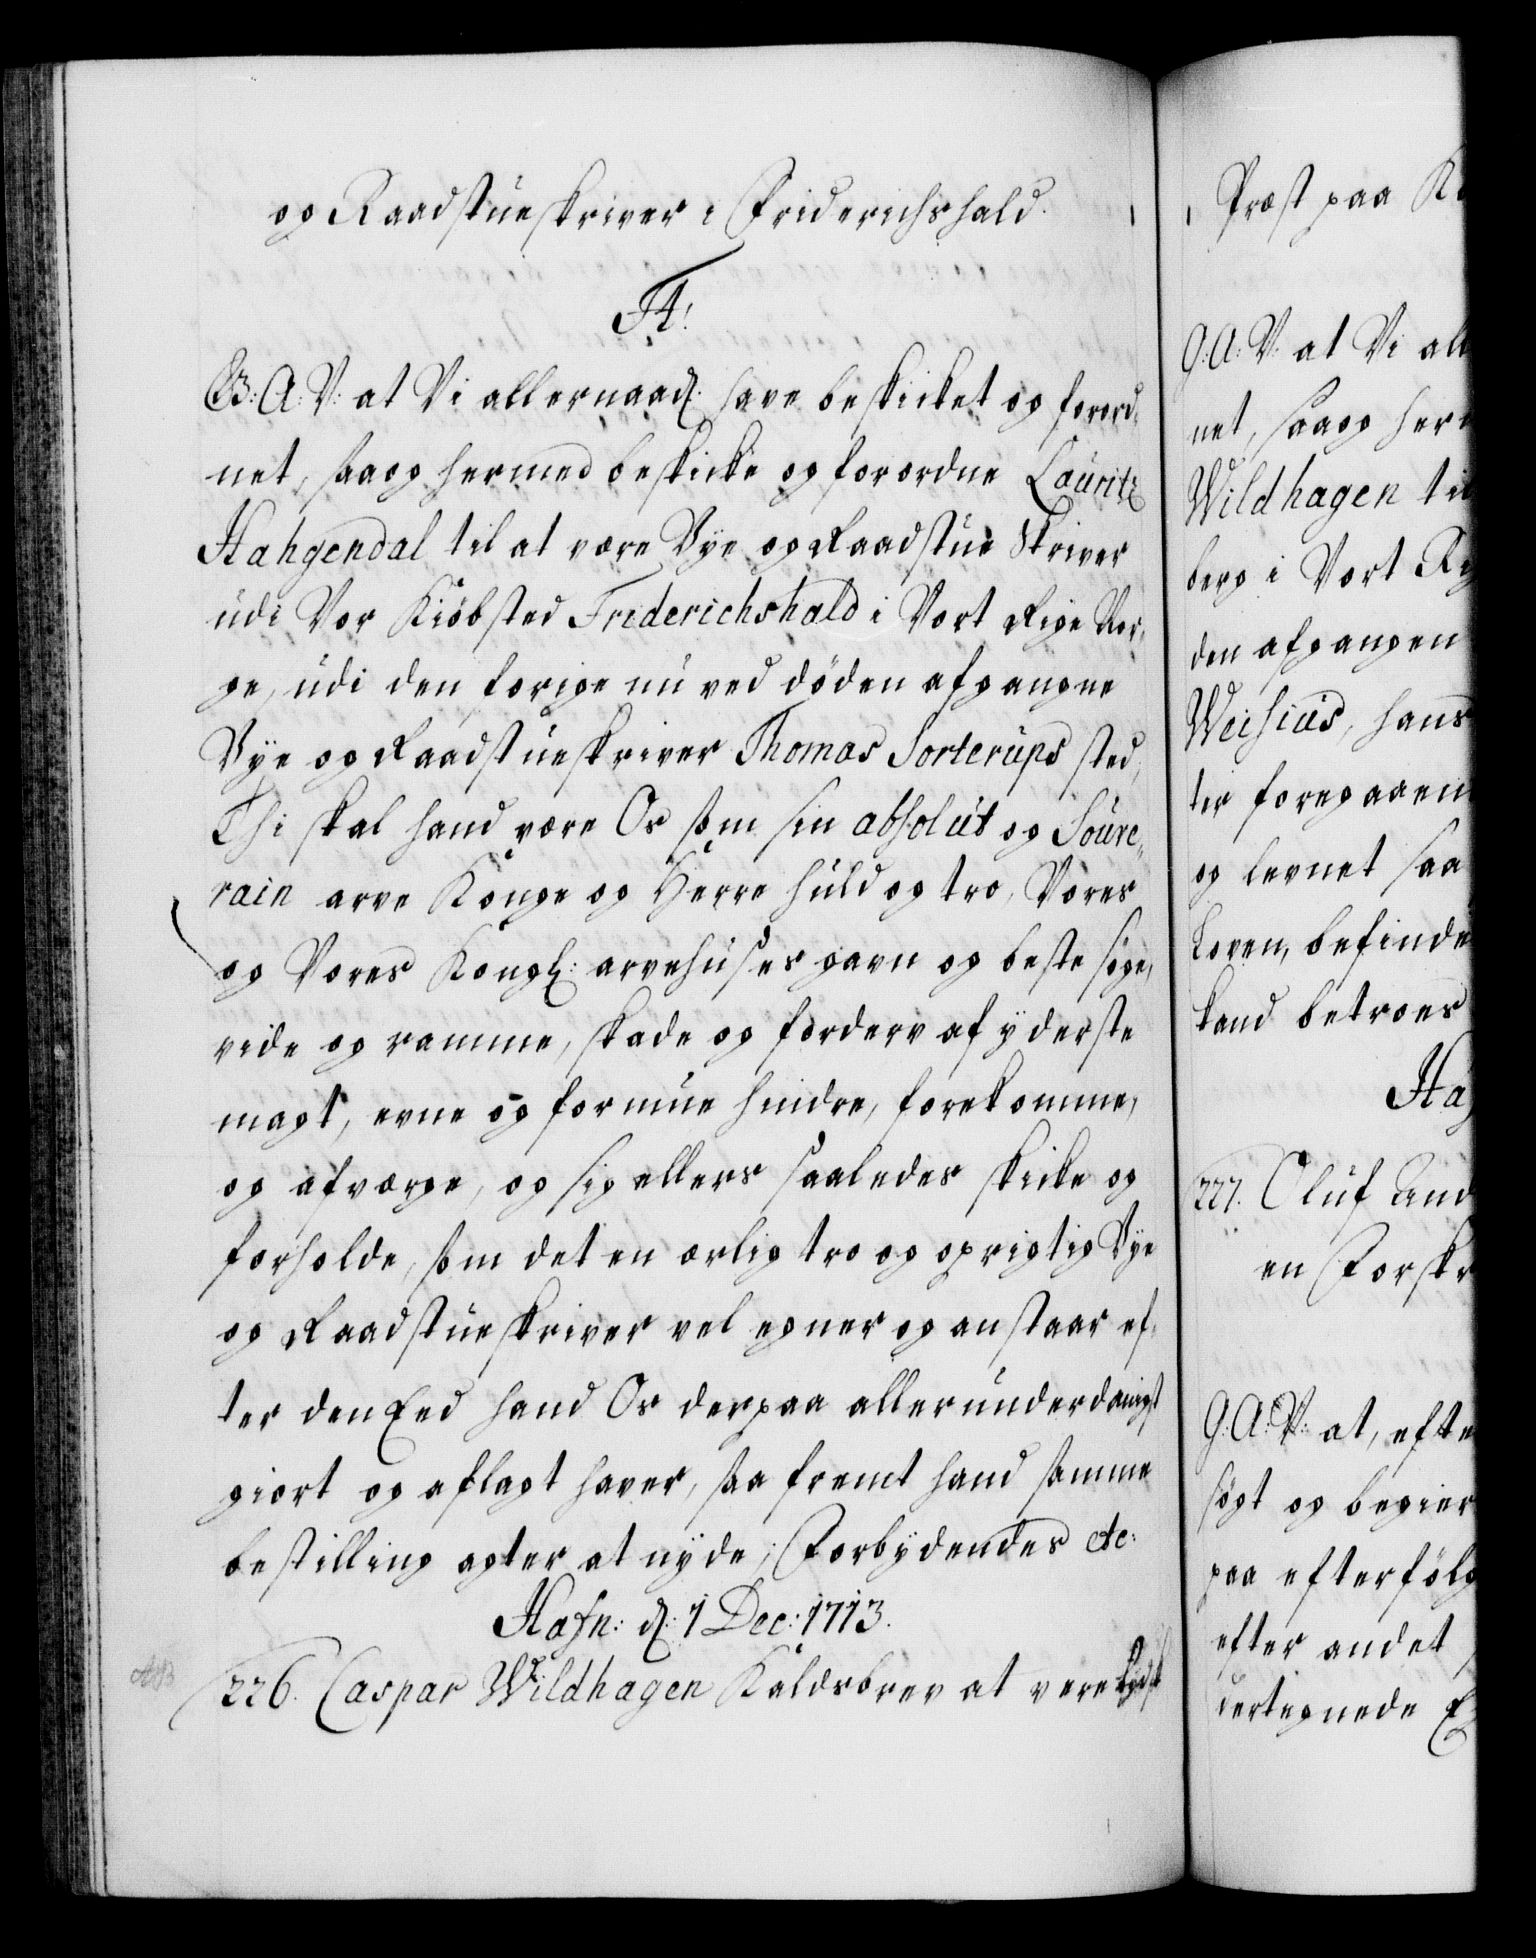 og Raadstueskriver i Friderichshald.
F4:
G: A: V: at Vi allernaad: have beskicket og forord-
net, saa og hermed beskicke og forordne Lauritz
Hahgendal til at være Bye og Raadstue Skriver
udi Vor Kiöbsted Friderichshald i Vort Rige Nor-
ge, udi den forige nu ved döden afgangne
Bye og Raadstueskriver Thomas Sorterups sted,
Thi skal hand være Os som sin absolut og Souve-
rain arve Konge og Herre huld og tro, Vores
og Vores Kongl: arvehuses gavn og beste söge,
vide og ramme, skade og forderv af yderste
magt, evne og formue hindre, forekomme,
og afværge, og sig ellers saaledes skicke og
forholde, som det en ærlig tro og oprigtig Bye
og Raadstueskriver vel egner og anstaar ef-
ter den Eed hand Os derpaa allerunderdanigst
giort og aflagt haver, saa fremt hand samme
bestilling agter at nyde; Forbydendes etc:
Hafn: d: 1 Dec: 1713.
226. Caspar Wildhagen Kaldsbrev at vere
Præst paa
G: A: V: at Vi all
net, saa og her
Wildhagen til
berg i Vort Ri
den afgangen
Weisius, hans
ter foregaaen
og levnet saa
Loven, befinde
kand betroes
Ha
227. Oluf And
en Forskr
G: A: V: at, efte
sögt og begier
paa efterfölg
efter andet
dertegnede